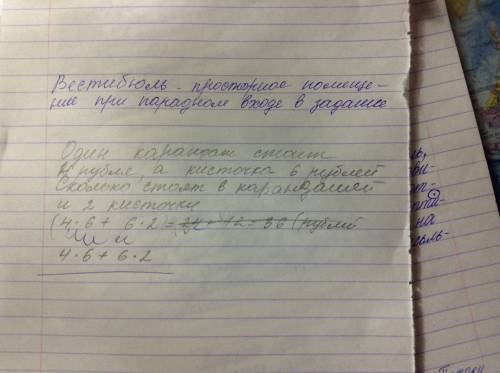 Вестибюль - просторное помеще-
ние при парадном входе в задание
Один карандаш стоит
4 рубля, а кисточка 6 рублей
Сколько стоят 6 карандашей
и 2 кисточки
(4·6 + 6·2) = 24 + 12 = 36 (рублей
4·6 + 6·2
ль,
на